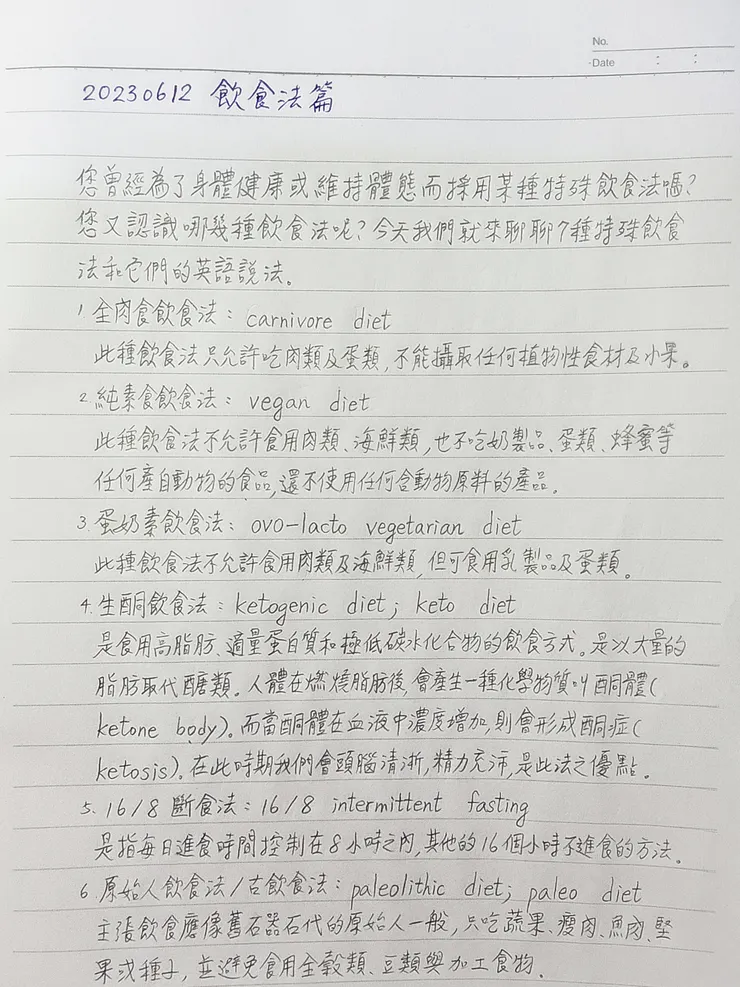 No.
Date : :
20230612 飲食法篇
您曾經為了身體健康或維持體態而採用某種特殊飲食法嗎?
您又認識哪幾種飲食法呢?今天我們就來聊聊7種特殊飲食
法和它們的英語說法。
1.全肉食飲食法: carnivore diet
此種飲食法只允許吃肉類及蛋類,不能攝取任何植物性食材及水果。
2.純素食飲食法: vegan diet
此種飲食法不允許食用肉類、海鮮類,也不吃奶製品、蛋類、蜂蜜等
任何產自動物的食品,還不使用任何含動物原料的產品。
3.蛋奶素飲食法: ovo-lacto vegetarian diet
此種飲食法不允許食用肉類及海鮮類,但可食用乳製品及蛋類。
4.生酮飲食法: ketogenic diet; keto diet
是食用高脂肪、適量蛋白質和極低碳水化合物的飲食方式。是以大量的
脂肪取代醣類。人體在燃燒脂肪後,會產生一種化學物質叫酮體(
ketone body)。而當酮體在血液中濃度增加,則會形成酮症(
ketosis)。在此時期我們會頭腦清淅,精力充沛,是此法之優點。
5.16/8 斷食法: 16/8 intermittent fasting
是指每日進食時間控制在8小時之內,其他的16個小時不進食的方法。
6.原始人飲食法/古飲食法: paleolithic diet; paleo diet
主張飲食應像舊石器石代的原始人一般,只吃蔬果、瘦肉、魚肉、堅
果或種子,並避免食用全穀類、豆類與加工食物.